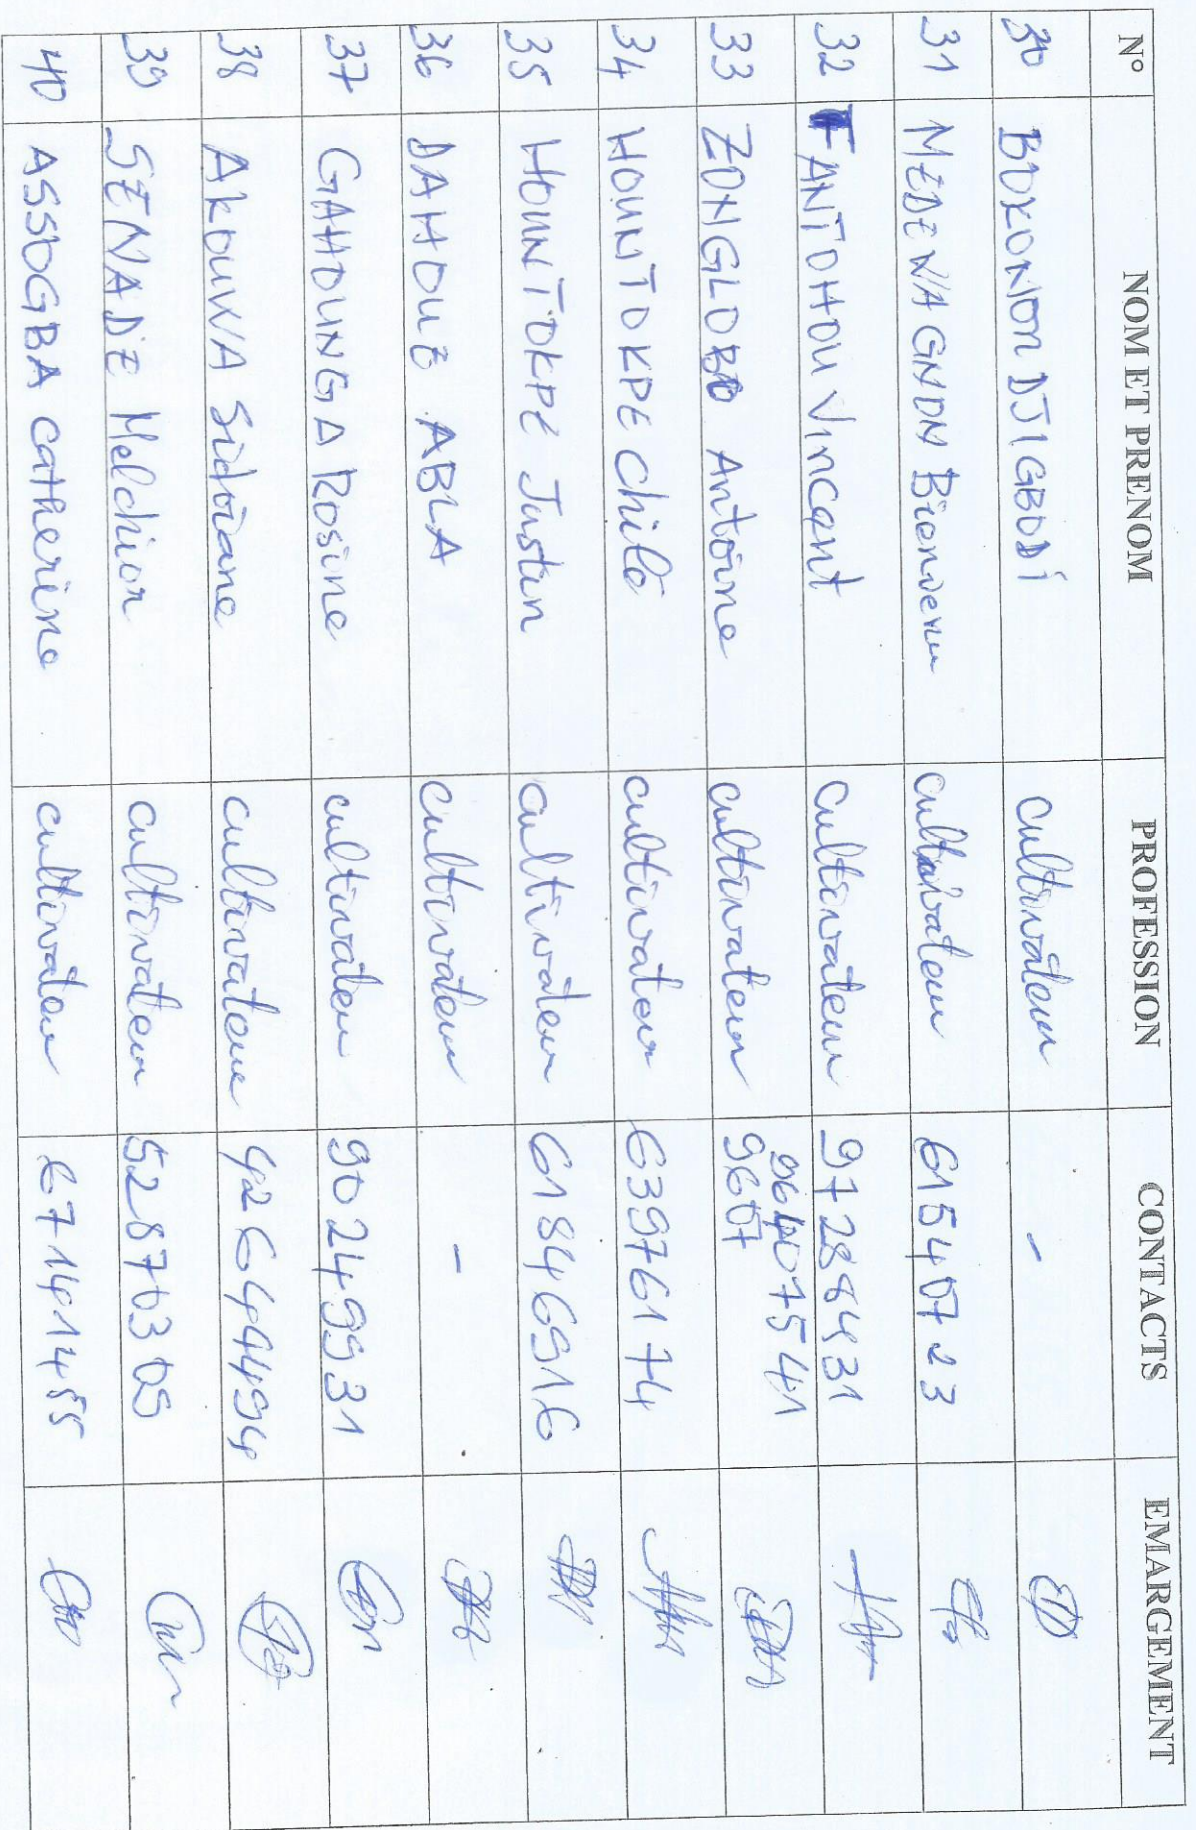 N° NOM ET PRENOM PROFESSION CONTACTS EMARGEMENT
30 BOKONON DJIGBODI cultivateur -
31 MEDENAGNON Bienvenu cultivateur 61540723
32 FANTOHOU Vincent cultivateur 97288431
33 ZONGLOBO Antoine cultivateur 96407541
9607
34 HOUNTOKPE Chile cultivateur 63976174
35 HOUNTOKPE Justin cultivateur 61846916
36 DAHOUE ABLA cultivateur -
37 GAHOUNGA Rosine cultivateur 90249931
38 AKOUWA Sidoiane cultivateur 42644494
39 SENADE Melchior cultivateur 52870309
40 ASSOGBA Catherine cultivateur 67141455